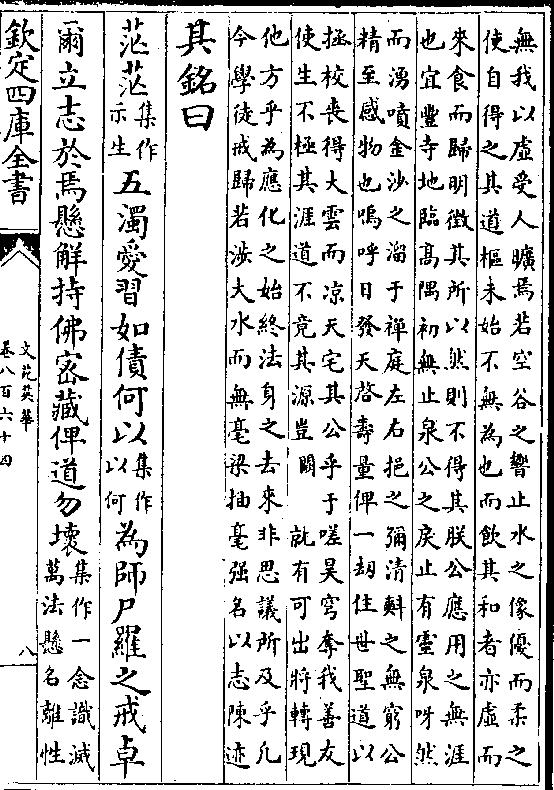 無我以虛受人曠焉若空谷之響止水之像優而柔之
使自得之其道樞未始不無為也而飲其和者亦虛而
來食而歸明徵其所以然則不得其朕公應用之無涯
也宜豐寺地臨髙隅初無止泉公之戾止有靈泉呀然
而湧噴金沙之溜于禪庭左右挹之彌清㪺之無窮公
精至感物也嗚呼日發天啓壽量俾一刼住世聖道以
拯校喪得大雲而凉天宅其公乎于嗟昊穹奪我善友
使生不極其涯道不竟其源豈爾 就有可出將轉現
他方乎為應化之始終法身之去來非思議所及乎凡
今學徒戒歸若涉大水而無毫梁抽毫强名以志陳迹
其銘曰
茫茫集作示生五濁愛習如債何以集作以何為師尸羅之戒卓
爾立志於焉懸解持佛宻藏俾道勿壞集作一念識滅萬法懸名離性
欽定四庫全書
文苑英華
卷八百六十四
八